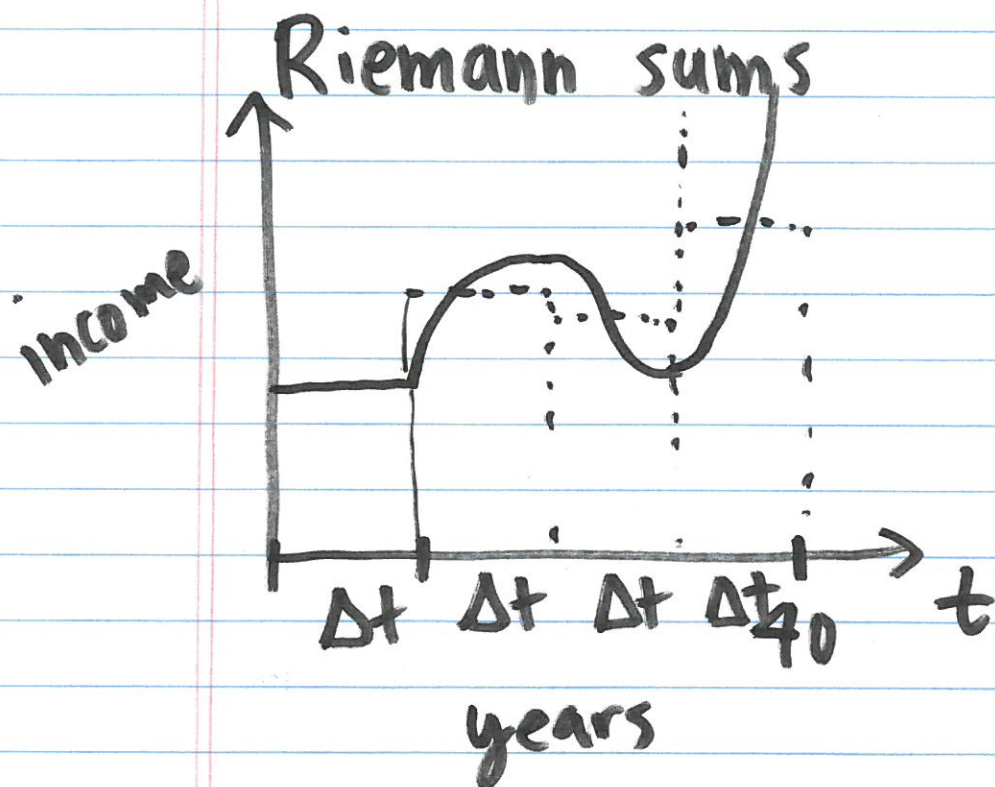 Riemann sums
income
Δt Δt Δt Δt 40 t
years